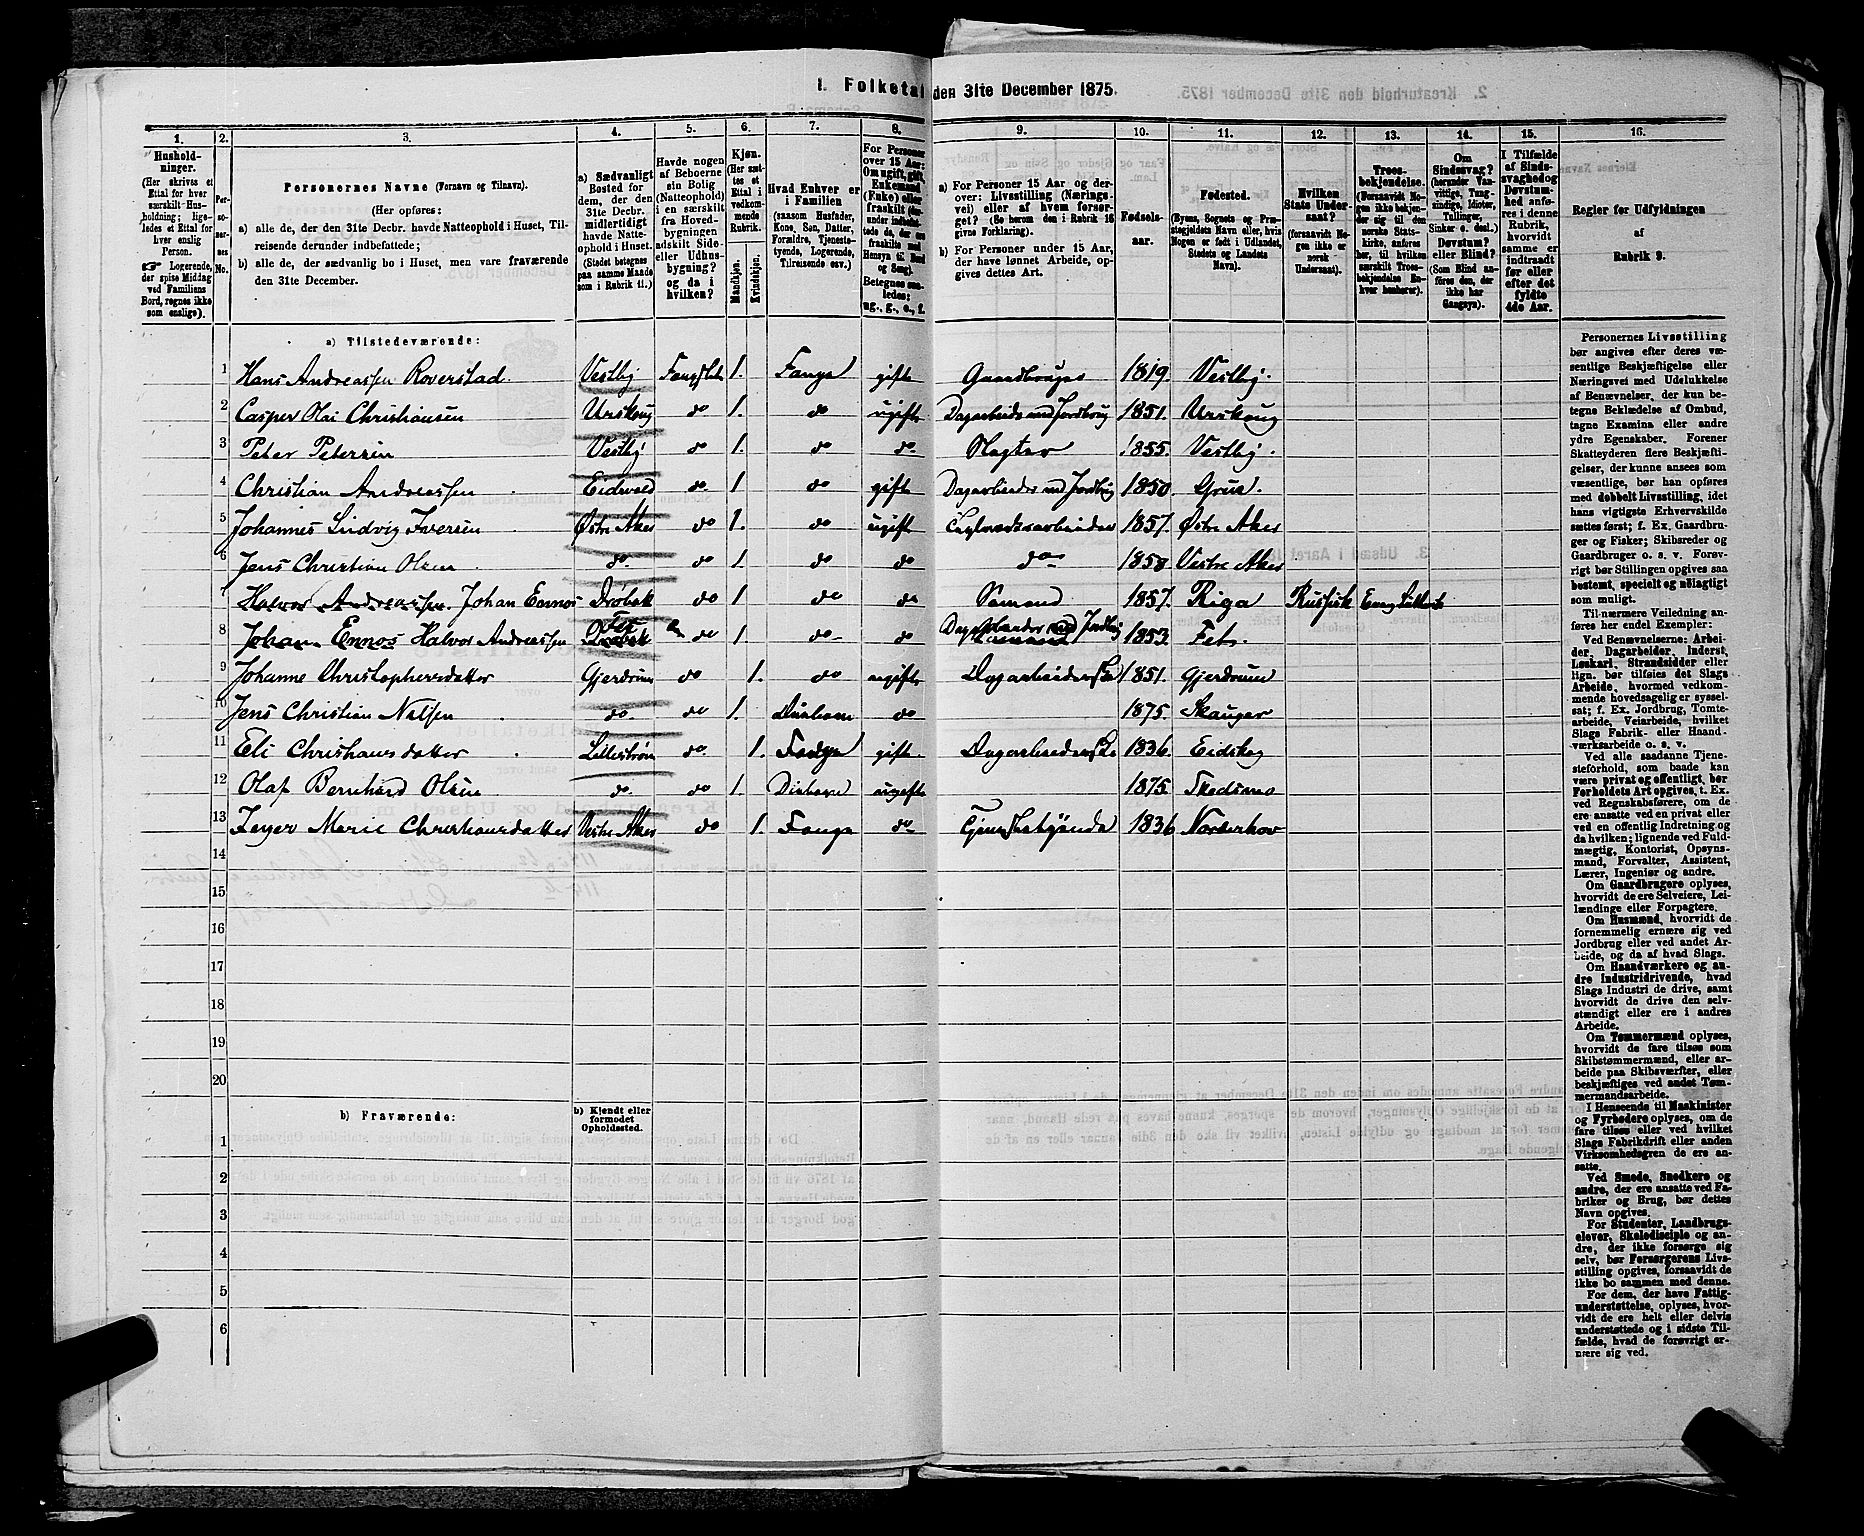 1. Folketal den 31te December 1875.
1. 2. 3. 4. 5. 6. 7. 8. 9. 10. 11. 12. 13. 14. 15. 16.
Husholdninger.
(Her skrives et
Ettal for hver
særskilt Husholdning; ligeledes et Ettal for
hver enslig
Person.
☞ Logerende,
der spise Middag
ved Familiens
Bord, regnes ikke
som enslige).
Personernes No.
Personernes Navne (Fornavn og Tilnavn).
(Her opføres:
a) alle de, der den 31te Decbr. havde Natteophold i Huset, Tilreisende derunder indbefattede;
b) alle de, der sædvanlig bo i Huset, men vare fraværende
den 31te December.
a) Sædvanligt
Bosted for
dem, der den
31te Decbr.
midlertidigt
havde Natteophold i Huset.
(Stedet betegnes
paa samme Maade
som i Rubrik 11.)
Havde nogen
af Beboerne
sin Bolig
(Natteophold)
i en særskilt
fra Hovedbygningen
adskilt Side-
eller Udhusbygning?
og da i
hvilken?
Kjøn.
(Her sættes et
Ettal i
vedkommende
Rubrik.
Mandkjøn.
Kvindekjøn.
Hvad Enhver er
i Familien
(saasom Husfader,
Kone, Søn, Datter,
Forældre, Tjenestetyende, Logerende,
Tilreisende osv.)
For Personer
over 15 Aar:
Om ugift, gift,
Enkemand
(Enke) eller
fraskilt
Betegnes saaledes:
ug., g., e., f.
a) For Personer 15 Aar og derover: Livsstilling (Næringsvei) eller af hvem forsørget? (Se herom den i Rubrik 16
givne Forklaring).
b) For Personer under 15 Aar,
der have lønnet Arbeide, opgives dettes Art.
Fødselsaar.
Fødested.
(Byens, Sognets og Præstegjeldets Navn eller, hvis
Nogen er født i Udlandet,
Stedets og Landets
Navn).
Hvilken
Stats Undersaat?
(forsaavidt Nogen ikke er
norsk
Undersaat).
Troesbekjendelse.
(Forsaavidt Nogen ikke bekjender sig til den
norske Statskirke, anføres
her, til hvilken
særskilt Troesbekjendelse Enhver henhører).
Om
Sindssvag?
(herunder Vanvittige, Tungsindige, Idioter,
Tullinger,
Sinker o. desl.)
Døvstum?
eller Blind?
(Som Blind anføres den, der
ikke har
Gangsyn).
I Tilfælde
af Sindssvaghed og
Døvstumhed anføres i denne
Rubrik,
hvorvidt
samme er
indtraadt
før eller
efter det
fyldte
4de Aar.
Regler for Udfyldningen
af
Rubrik 9.
a) Tilstedeværende:
1 Hans Andreassen Roverstad Vestby 1. Fange gift Gaardbruger 1819. Vestby.
2 Casper Olai Christiansen Urskoug do 1. do ugift Dagarbeide ved Jordbrug 1851. Urskoug
3 Peter Petersen Vestby do 1. do do. Slagter 1855. Vestby.
4 Christian Andreassen Eidsvold do. 1 do gift Dagarbeider ved Jordbrug 1850. Grue.
5 Johannes Ludvig Iversen Østre Aker do 1. do ugift Teglværksarbeider 1857. Østre Aker
6 Jens Christian Olsen do. do 1. do do do 1858 Vestre Aker
7 Halvor Andreassen. Johan Ennos Drøbak do 1 do do Sømand 1857. Riga Russisk
8 Johan Ennos Halvor Andreassen Drøbak Fet do 1. do do Dagarbeider ved Jordbrug Sømand 1853. Fet.
9 Johanne Christophersdatter Gjerdrum do 1. do ugift 1851. Gjerdrum
10 Jens Christian Nilsen do. do 1. Diebarn do 1875. Skauger
11 Eli Christiansdatter Lillestrøm do. 1. Fange gift 1836. Eidskog
12 Olaf Bernhard Olsen do. do 1. Diebarn ugift 1875. Skedsmo
13 Marie Christiansdatter Vestre Aker do 1. Fange do 1836 Norderhov
14
15
16
17
18
19
20
b) Fraværende:
b) Kjendt eller
formodet
Opholdssted.
1
2
3
4
5
6
Personernes Livsstilling
bør angives efter deres væsentlige Beskjæftigelse eller
Næringsvei med Udelukkelse
af Benævnelser, der kun betegne Beklædelse af Ombud,
tagne Examina eller andre
ydre Egenskaber. Forener
Skatteyderen flere Beskjæftigelser, der kunne ansees som
væsentlige, bør han opføres
med dobbelt Livsstilling, idet
hans vigtigste Erhvervskilde
sættes først; f. Ex. Gaardbruger og Fisker; Skibsreder og
Gaardbruger o. s. v. Forøvrigt bør Stillingen opgives saa
bestemt, specielt og nøiagtigt
som muligt.
Til nærmere Veiledning anføres her endel Exempler:
Ved Benævnelserne: Arbeider, Dagarbeider, Inderst,
Løskarl, Strandsidder eller
lign. bør tilføies det Slags
Arbeide, hvormed vedkommende hovedsagelig er sysselsat; f. Ex. Jordbrug, Tomtearbeide, Veiarbeide, hvilket
Slags Fabrik- eller Haandværksarbeide o. s. v.
Ved alle saadanne Tjenesteforhold, som baade kan
være privat og offentligt, bør
Forholdets Art opgives, t. Ex.
ved Regnskabsførere, om de
ere ansatte ved en privat eller
ved en offentlig Indretning og
da hvilken; lignende ved Fuldmægtig, Kontorist, Opsynsmand, Forvalter, Assistent,
Lærer, Ingeniør og andre.
Om Gaardbrugere oplyses,
hvorvidt de ere Selveiere, Leilændinge eller Forpagtere.
Om Husmænd, hvorvidt de
fornemmelig ernære sig ved
Jordbrug eller ved andet Arbeide, og da af hvad Slags.
Om Haandværkere og andre Industridrivende, hvad
Slags Industri de drive, samt
hvorvidt de drive den selvstændigt eller ere i andres
Arbeide.
Om Tømmermænd oplyses,
hvorvidt de fare tilsøs som
Skibstømmermænd, eller arbeide paa Skibsværfter, eller
beskjæftiges ved andet Tømmermandsarbeide.
I Henseende til Maskinister
og Fyrbødere oplyses, om de
fare tilsøs eller ved hvilket
Slags Fabrikdrift eller anden
Virksomhedsgren de ere ansatte.
Ved Smede, Snedkere og
andre, der ere ansatte ved Fabriker og Brug, bør dettes
Navn opgives.
For Studenter, Landbrugselever, Skoledisciple og andre, der ikke forsørge sig
selv, bør Forsørgerens Livsstilling opgives, forsaavidt de
ikke bo sammen med denne.
For dem, der have Fattigunderstøttelse, oplyses, hvorvidt de ere helt eller delvis
understøttede og i sidste Tilfælde, hvad de forøvrigt ernære sig ved.